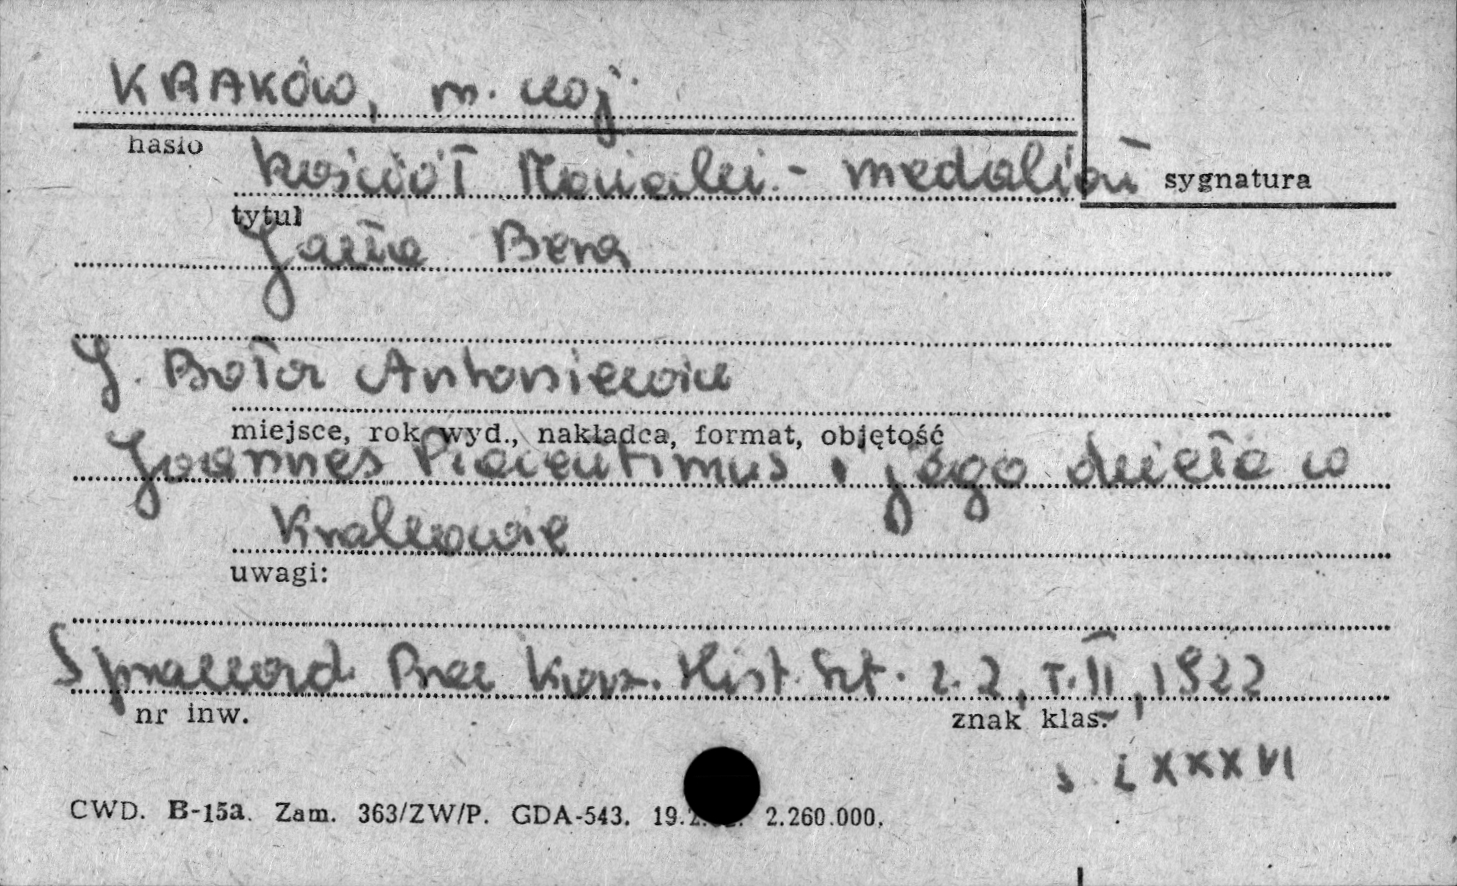 KRAKÓW, m. woj.
hasło
kościół Mariacki - medalion
sygnatura
tytuł
Jana Bera
J. Bołoz Antoniewicz
miejsce, rok wyd., nakładca, format, objętość
Joannes Placentinus i jego dzieła w
Krakowie
uwagi:
Sprawozd. Prac Kom. Hist. Szt. z. 2, T. II, 1922
nr inw.
znak klas.
s. LXXXVI
CWD. B-15a. Zam. 363/ZW/P. GDA-543. 2.260.000.